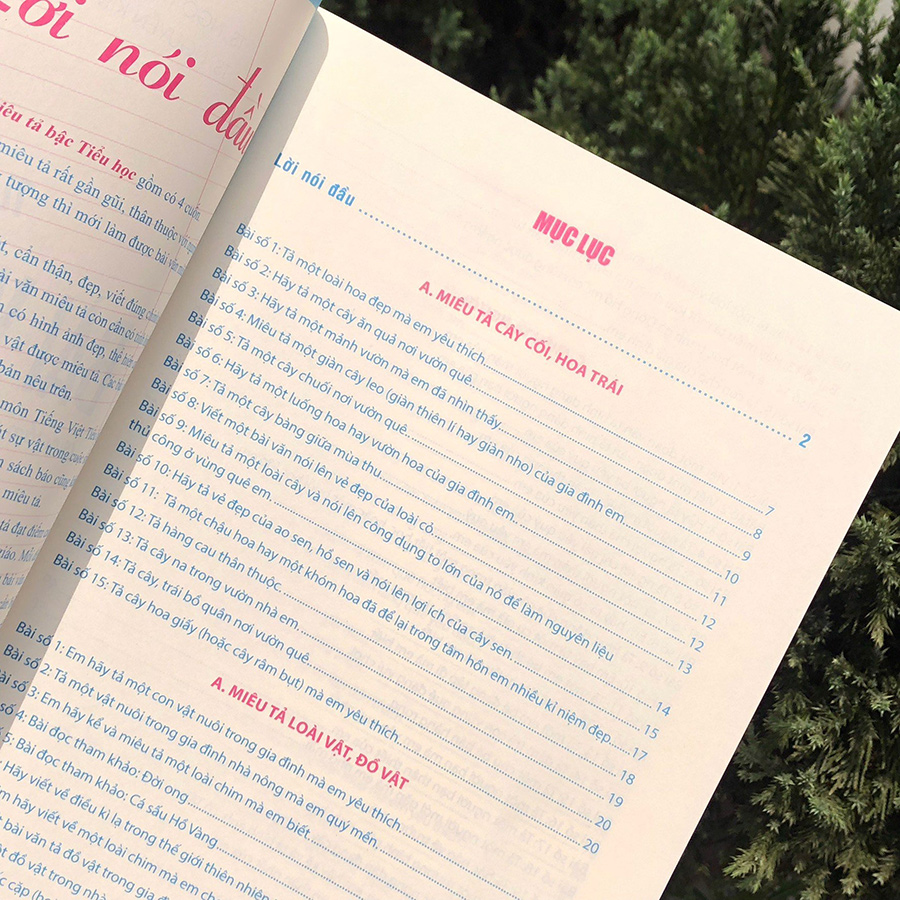 Lời nói đầu
iêu tả bậc Tiểu học gồm có 4 cuốn.
miêu tả rất gần gũi, thân thuộc với
tượng thì mới làm được bài văn
t, cẩn thận, đẹp, viết đúng
ài văn miêu tả còn cần có
n có hình ảnh đẹp, thể
vật được miêu tả. Các
bản nêu trên.
môn Tiếng Việt
ét sự vật trong cuộc
n sách báo cũng
miêu tả.
tả đạt điểm
giáo.
MỤC LỤC
Lời nói đầu ........ 2
A. MIÊU TẢ CÂY CỐI, HOA TRÁI
Bài số 1: Tả một loài hoa đẹp mà em yêu thích........ 7
Bài số 2: Hãy tả một cây ăn quả nơi vườn quê........ 8
Bài số 3: Hãy tả một mảnh vườn mà em đã nhìn thấy........ 9
Bài số 4: Miêu tả một giàn cây leo (giàn thiên lí hay giàn nho) của gia đình em........ 10
Bài số 5: Tả một cây chuối nơi vườn quê........ 11
Bài số 6: Hãy tả một luống hoa hay vườn hoa của gia đình em........ 12
Bài số 7: Tả một cây bàng giữa mùa thu........ 12
Bài số 8: Viết một bài văn nói lên vẻ đẹp của loài cỏ........ 13
Bài số 9: Miêu tả một loài cây và nói lên công dụng to lớn của nó để làm nguyên liệu
thủ công ở vùng quê em........ 14
Bài số 10: Hãy tả vẻ đẹp của ao sen, hồ sen và nói lên lợi ích của cây sen........ 15
Bài số 11: Tả một chậu hoa hay một khóm hoa đã để lại trong tâm hồn em nhiều kỉ niệm đẹp........ 17
Bài số 12: Tả hàng cau thân thuộc........ 18
Bài số 13: Tả cây na trong vườn nhà em........ 19
Bài số 14: Tả cây, trái bồ quân nơi vườn quê........ 20
Bài số 15: Tả cây hoa giấy (hoặc cây râm bụt) mà em yêu thích........ 20
A. MIÊU TẢ LOÀI VẬT, ĐỒ VẬT
Bài số 1: Em hãy tả một con vật nuôi trong gia đình mà em yêu thích........
Bài số 2: Tả một vật nuôi trong gia đình nhà nông mà em quý mến........
Bài số 3: Em hãy kể và miêu tả một loài chim mà em biết........
4: Bài đọc tham khảo: Đời ong........
5: Bài đọc tham khảo: Cá sấu Hồ Vàng........
: Hãy viết về điều kì lạ trong thế giới thiên nhiên
m hãy viết về một loài chim mà em
t bài văn tả đồ vật trong gia
ật đồ vật trong nhà
c cặp